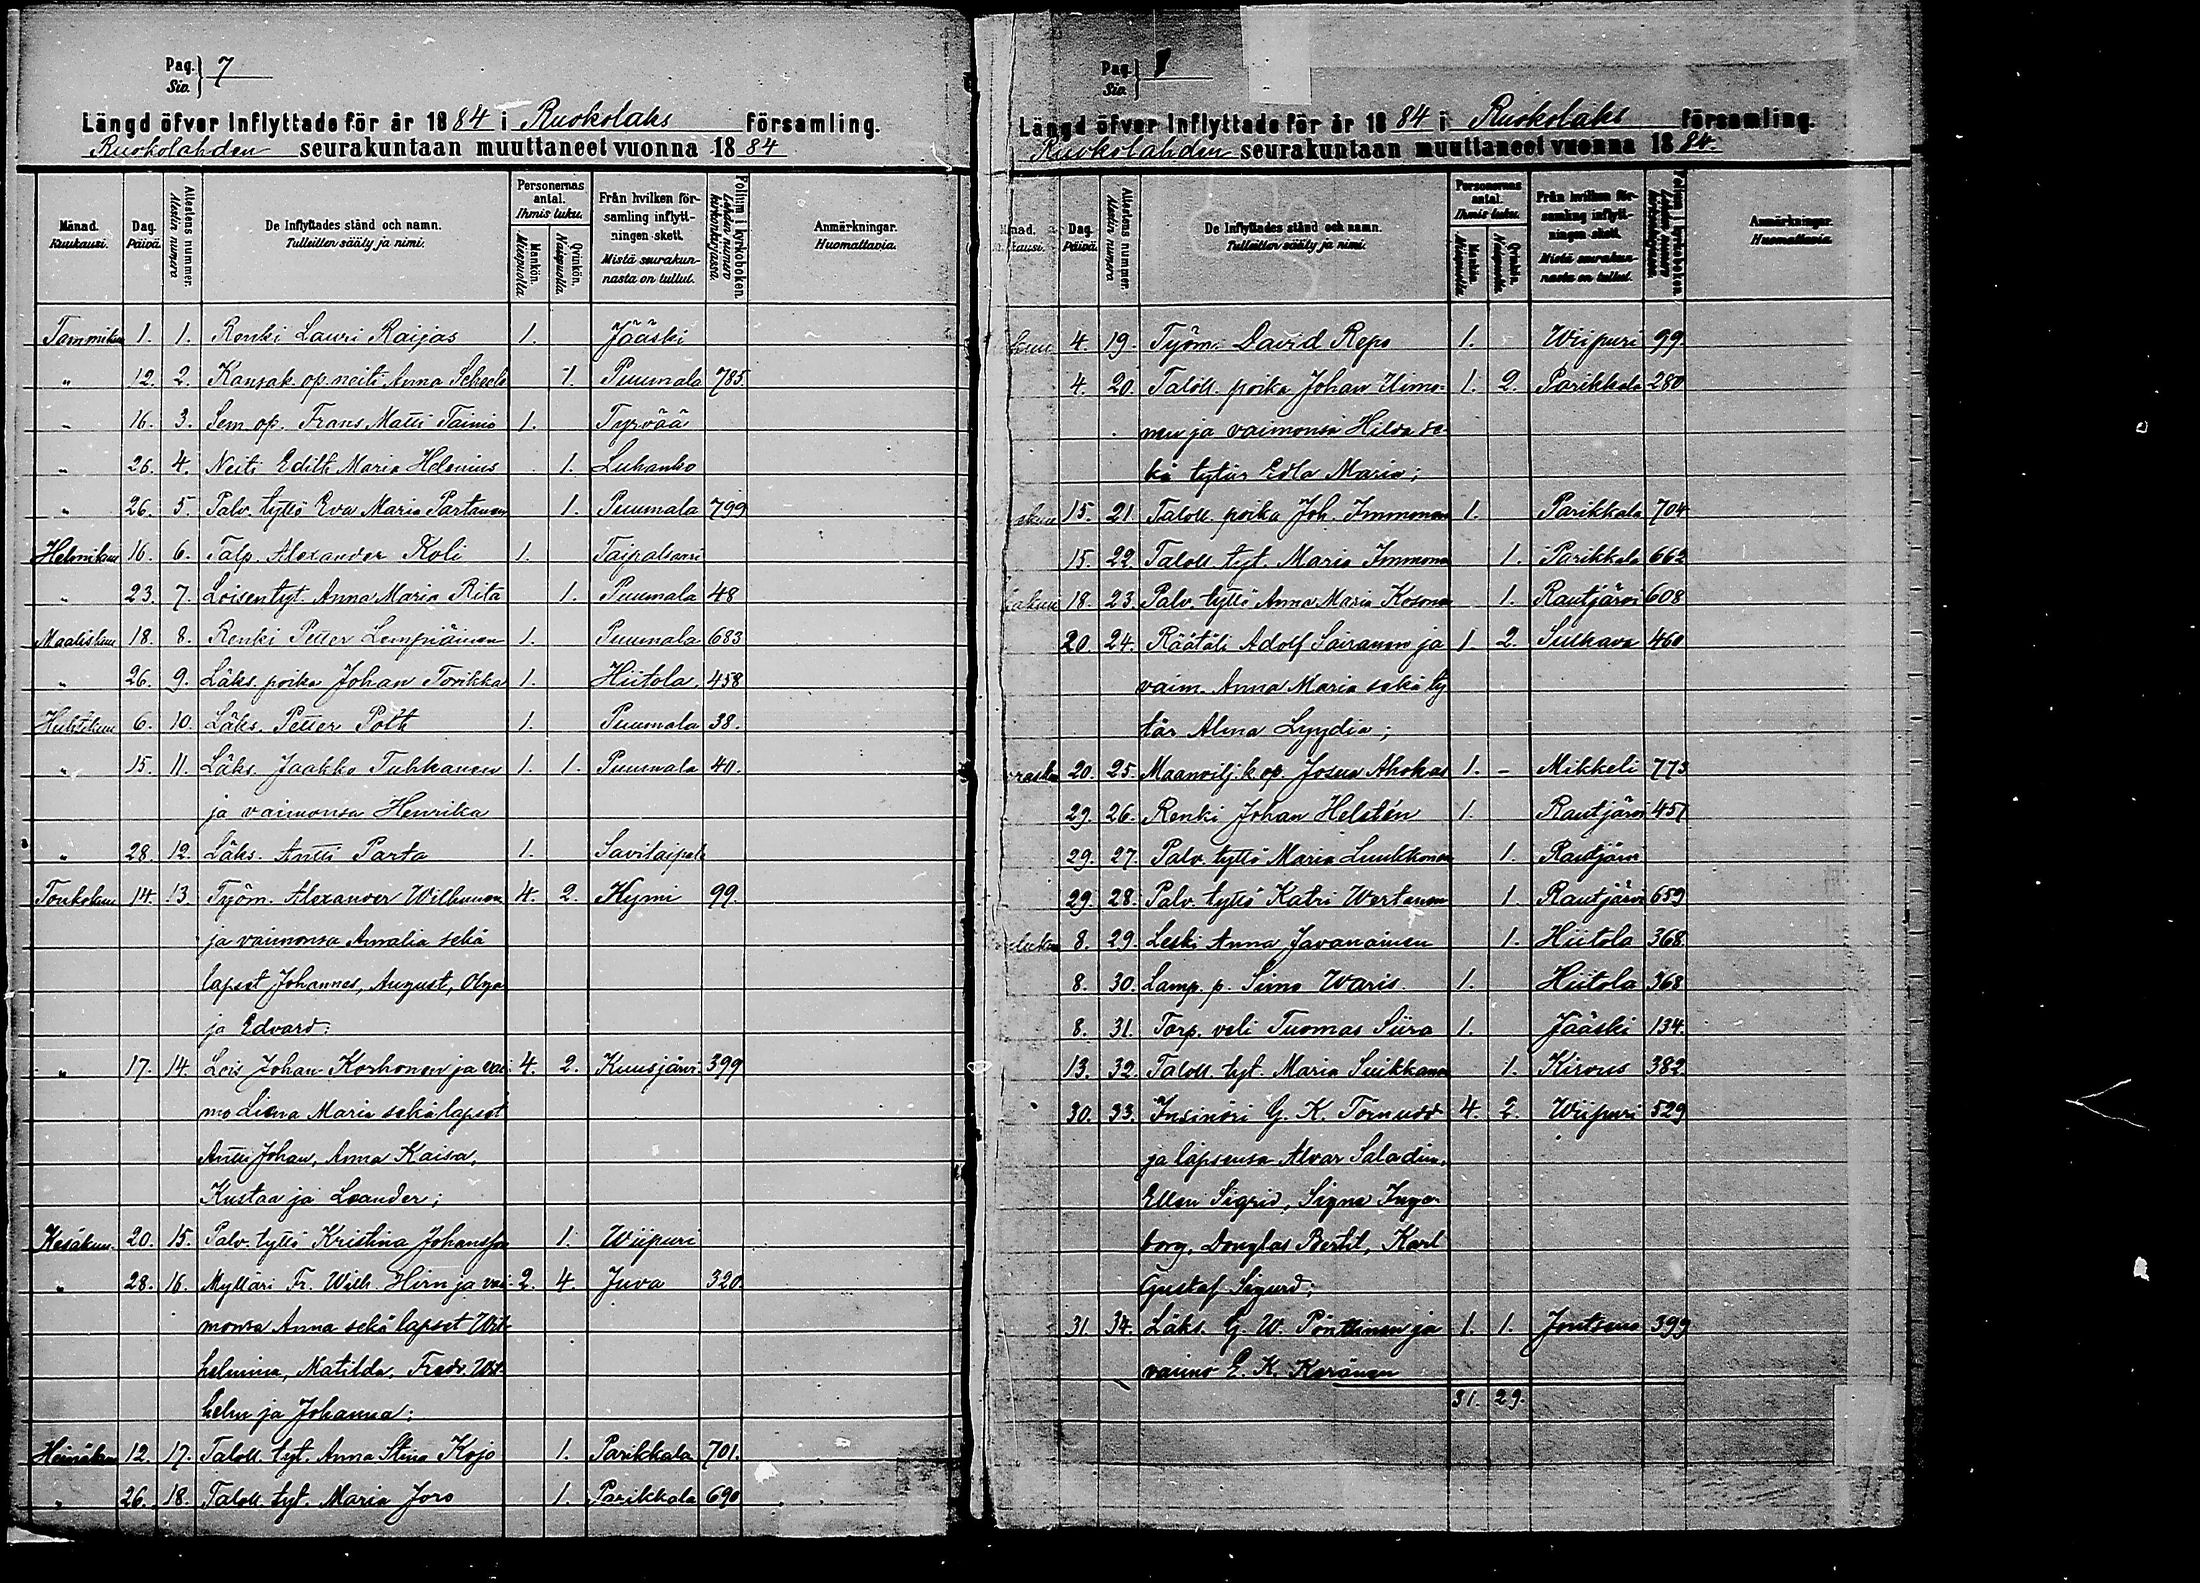 Pag. Siv. } 7
Längd öfver Inflyttade för år 1884 i Ruokolaks församling.
Ruokolahden seurakuntaan muuttaneet vuonna 1884
Månad. Kuukausi. Dag. Päivä. Attestens nummer. Atestin numero De Inflyttades stånd och namn. Tulleitten sääty ja nimi. Personernas antal. Ihmis luku. Mankön. Miespuolia Qvinkön. Naispuolia. Från hvilken församling inflyttningen skett. Mistä seurakunnasta on tullut. Folium i kyrkoboken. Lehden numero kirkonkirjassa. Anmärkningar. Huomattavia.
Tammikuu 1. 1. Renki Lauri Raijas 1. Jääski
" 12. 2. Kansak. op. neiti Anna Scheele 1. Puumala 785.
" 16. 3. Sem. op. Frans Matti Tainio 1. Tyrvää
" 26. 4. Neiti Edith Maria Helenius 1. Luhanko
" 26. 5. Palv. tyttö Eva Maria Partanen 1. Puumala 799
Helmikuu 16. 6. Talp. Alexander Koli 1. Taipalsaari
" 23. 7. Loisen tyt. Anna Maria Ritä 1. Puumala 48
Maaliskuu 18. 8. Renki Petter Lempiäinen 1. Puumala 683
" 26. 9. Läks. poika Johan Torikka 1. Hiitola. 458
Huhtikuu 6. 10. Läks. Petter Pott 1. Puumala 38.
" 15. 11. Läks. Jaakko Tuhkanen 1. 1. Puumala 40.
ja vaimonsa Henrika
" 28. 12. Läks. Antti Parta 1. Savitaipale
Toukokuu 14. 13. Työm. Alexander Wilhunen 4. 2. Kymi 99.
ja vaimonsa Amalia sekä
lapset Johannes, August, Olga
ja Edvard:
" 17. 14. Lois Johan Korhonen ja vai- 4. 2. Kuusjärvi 399
mo Liena Maria sekä lapset
Antti Johan, Anna Kaisa,
Kustaa ja Leander;
Kesäkuu. 20. 15. Palv. tyttö Kristina Johansson 1. Wiipuri
" 28. 16. Mylläri Fr. Wilh. Hirn ja vai- 2. 4. Juva 320.
monsa Anna sekä lapset Wil-
helmina, Matilda, Fredr. Wil-
helm ja Johanna;
Heinäkuu 12. 17. Taloll. tyt. Anna Stina Kojo 1. Parikkala 701.
" 26. 18. Taloll. tyt. Maria Joro 1. Parikkala 690
Pag. Siv. }
Längd öfver Inflyttade för år 1884 i Ruokolaks församling.
Ruokolahden seurakuntaan muuttaneet vuonna 1884.
Dag. Päivä. Attestens nummer. Atestin numero De Inflyttades stånd och namn. Tulleitten sääty ja nimi. Personernas antal. Ihmis luku. Mankön. Miespuolia Qvinkön. Naispuolia. Från hvilken församling inflyttningen skett. Mistä seurakunnasta on tullut. Folium i kyrkoboken. Lehden numero kirkonkirjassa. Anmärkningar. Huomattavia.
4. 19. Työm. David Repo 1. Wiipuri 99.
4. 20. Taloll. poika Johan Uimo- 1. 2. Parikkala 280
nen ja vaimonsa Hilda se-
kä tytär Edla Maria;
15. 21. Taloll. poika Joh. Immonen 1. Parikkala 704
15. 22. Taloll. tyt. Maria Immonen 1. Parikkala 662
18. 23. Palv. tyttö Anna Maria Kosonen 1. Rautjärvi 608
20. 24. Räätäli Adolf Sairanen ja 1. 2. Sulkava 460
vaim. Anna Maria sekä ty
tär Alma Lyydia;
20. 25. Maanvilj. k. op. Josua Ahokas 1. - Mikkeli 773
29. 26. Renki Johan Helstén 1. Rautjärvi 451
29. 27. Palv. tyttö Maria Luukkonen 1. Rautjärvi
29. 28. Palv. tyttö Katri Wertanen 1. Rautjärvi 659
8. 29. Leski Anna Javanainen 1. Hiitola 368
8. 30. Lamp. p. Simo Waris 1. Hiitola 368
8. 31. Torp. veli Tuomas Siira 1. Jääski 134.
13. 32. Taloll. tyt. Maria Suikkanen 1. Kirvus 382
30. 33. Insinöri G. K. Törnudd 4. 2. Wiipuri 529
ja lapsensa Alvar Saladin,
Ellen Sigrid, Signe Inge-
borg, Douglas Bertil, Karl
Gustaf Sigurd;
31. 34. Läks. G. W. Pönttinen ja 1. 1. Joutseno 399
vaimo E. K. Keränen
31. 29.